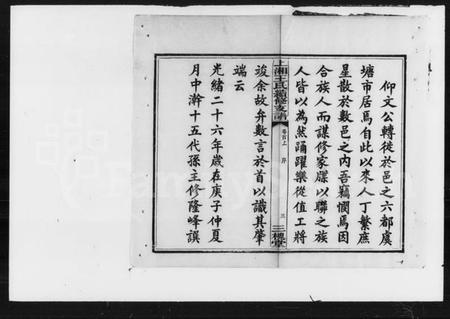 仰文公轉徙於邑之六都虞
塘市居焉自此以來人丁繁廡
星散於數邑之內吾竊憫焉因
合族人而謀修家牒以聯之族
人皆以為然踴躍樂從值工將
上湘王氏續修支譜
卷首上 序 三 三槐堂
竣余故弁數言於首以識其肇
端云
光緒二十六年歲在庚子仲夏
月中澣十五代孫主修隆峰譔